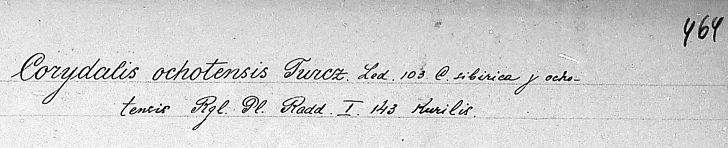 464
Corydalis ochotensis Turcz. Led. 103 C. sibirica γ ocho-
tensis Rgl. Pl. Radd. I. 143 Kurilis.